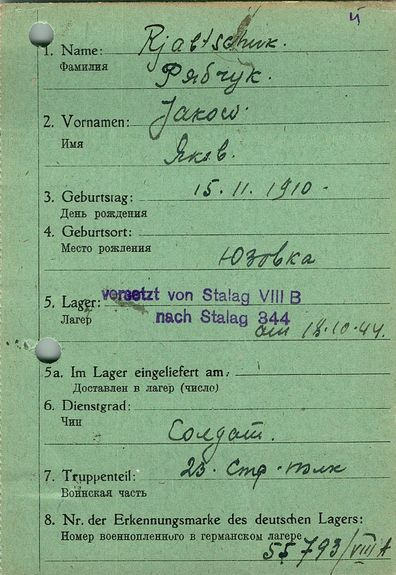 й
1. Name: Rjabtschuk.
Фамилия Рябчук.
2. Vornamen: Jakow
Имя Яков.
3. Geburtstag: 15. 11. 1910.
День рождения
4. Geburtsort:
Место рождения Юзовка
5. Lager: versetzt von Stalag VIII B
Лагер nach Stalag 344
am 18.10.44.
5a. Im Lager eingeliefert am:
Доставлен в лагер (число)
6. Dienstgrad:
Чин Солдат.
7. Truppenteil: 23. Стр. полк
Воинская часть
8. Nr. der Erkennungsmarke des deutschen Lagers:
Номер военнопленного в германском лагере
55793/VIII A